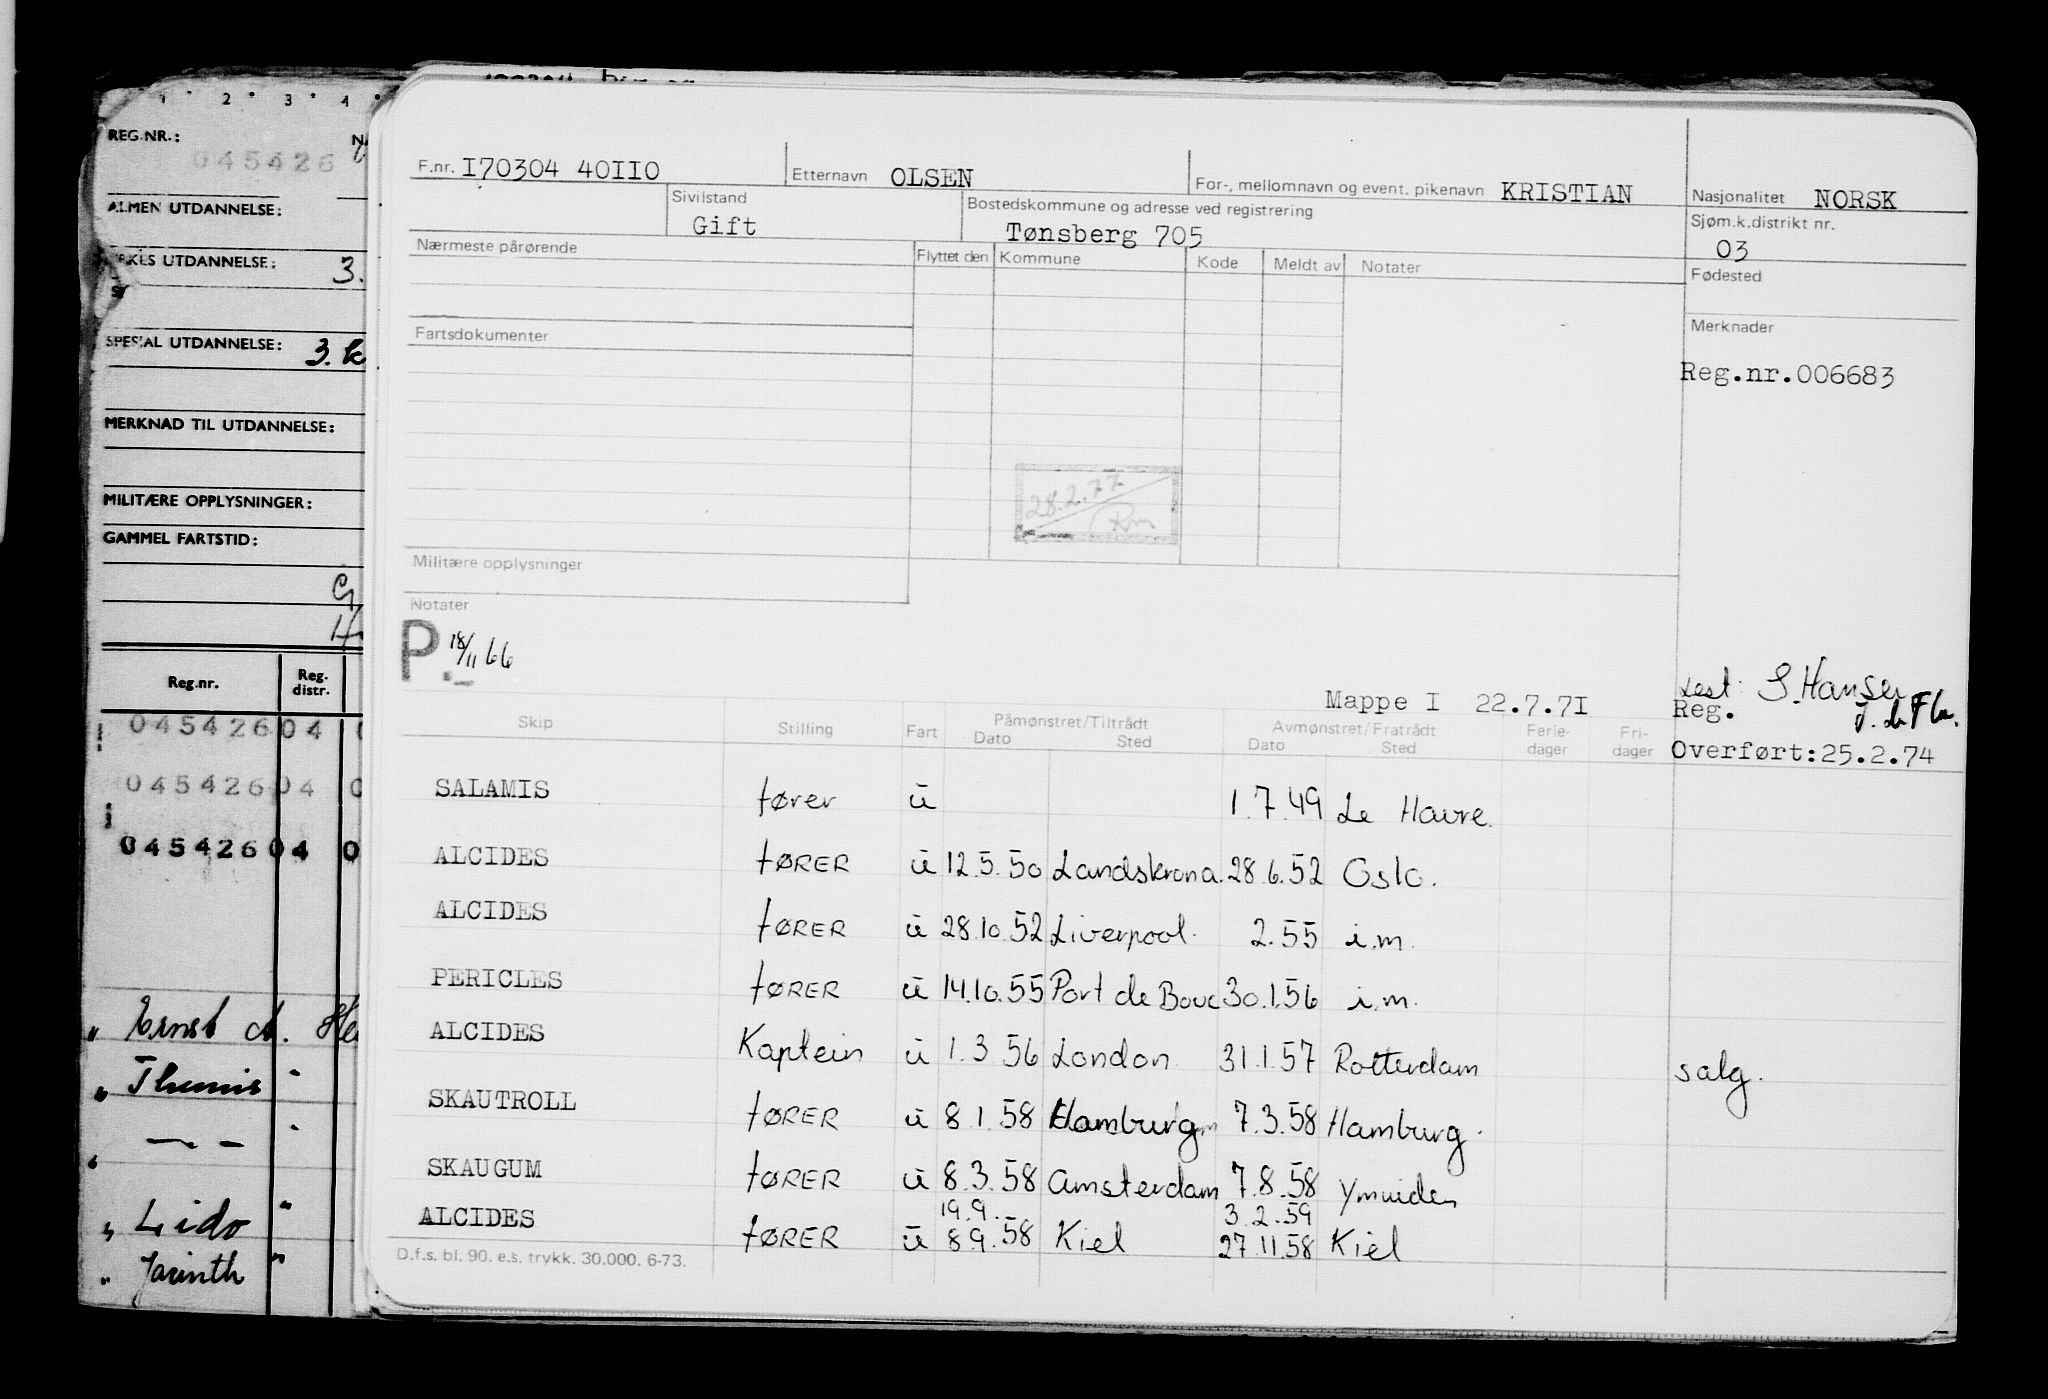 1 2 3 4
REG.NR.:
045426
ALMEN UTDANNELSE:
UTDANNELSE: 3.
SPESIAL UTDANNELSE: 3. k
MERKNAD TIL UTDANNELSE:
MILITÆRE OPPLYSNINGER:
GAMMEL FARTSTID:
Reg.nr. Reg. distr.
045426 04 0
045426 04 0
045426 04 0
" Ernst A. He
" Themis "
" Lido "
" Jacinth "
F.nr. I70304 40II0 Etternavn OLSEN For-, mellomnavn og event. pikenavn KRISTIAN Nasjonalitet NORSK
Sivilstand Gift Bostedskommune og adresse ved registrering Tønsberg 705 Sjøm.k.distrikt nr. 03
Nærmeste pårørende Flyttet den Kommune Kode Meldt av Notater Fødested
Fartsdokumenter Merknader
Reg.nr.006683
28.2.77
Rm
Militære opplysninger
Notater
P. 18/11 66
Mappe I 22.7.7I Lest: S. Hansen
Reg.
Skip Stilling Fart Påmønstret/Tiltrådt Dato Sted Avmønstret/Fratrådt Dato Sted Ferie-dager Fri-dager Overført:25.2.74
SALAMIS fører ū 1.7.49 Le Havre.
ALCIDES fØRER ū 12.5.50 Landskrona. 28.6.52 Oslo.
ALCIDES fØRER ū 28.10.52 Liverpool. 2.55 i.m.
PERICLES fØRER ū 14.10.55 Port de Bouc 30.1.56 i.m.
ALCIDES Kaptein ū 1.3.56 London. 31.1.57 Rotterdam salg.
SKAUTROLL fØRER ū 8.1.58 Hamburg 7.3.58 Hamburg.
SKAUGUM fØRER ū 8.3.58 Amsterdam 7.8.58 Ymuiden
19.9. 3.2.59
ALCIDES fØRER ū 8.9.58 Kiel 27.11.58 Kiel
D.f.s. bl. 90. e.s. trykk. 30.000. 6-73.